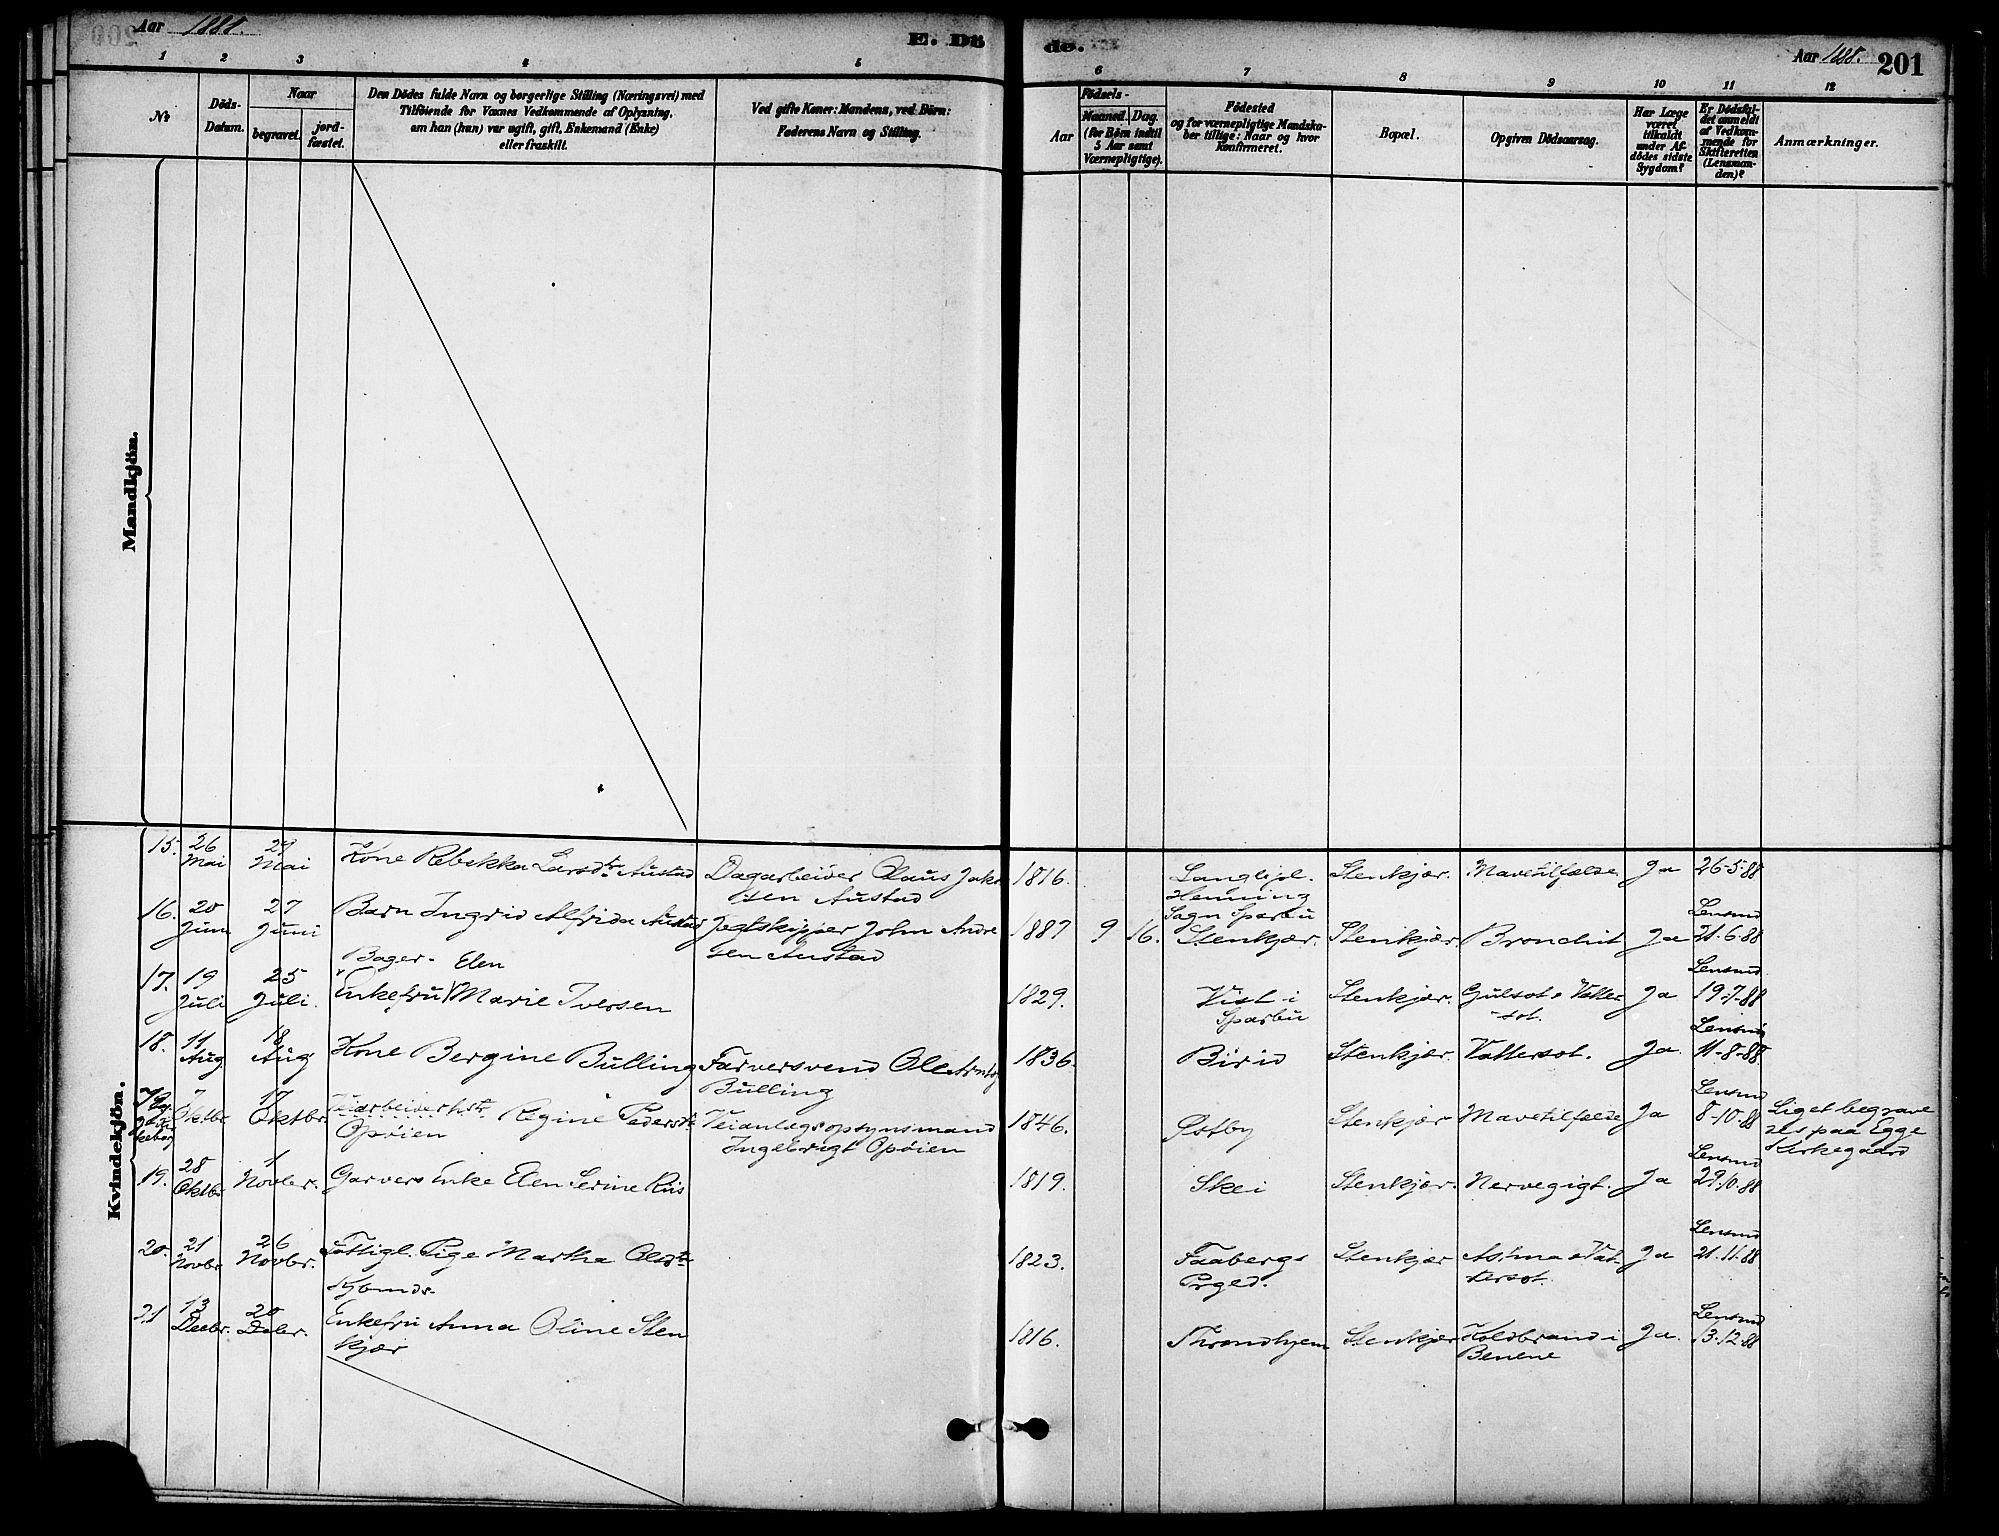 Aar 1888.
E. Dö
de.
Aar 1888.
201
1 2 3 4 5
6 7 8 9 10 11 12
No
Döds-
Datum.
Naar
begravet.
jord-
fæstet.
Den Dödes fulde Navn og borgerlige Stilling (Næringsvei) med
Tilföiende for Voxnes Vedkommende af Oplysning,
om han (hun) var ugift, gift, Enkemand (Enke)
eller fraskilt.
Ved gifte Koner: Mandens, ved Börn:
Faderens Navn og Stilling.
Födsels-
Aar
Maaned. Dag.
(for Børn indtil
5 Aar samt
Værnepligtige).
Födested
og for værnepligtige Mandska-
ber tillige: Naar og hvor
konfirmeret.
Bopæl.
Opgiven Dödsaarsag.
Har Læge
været
tilkaldt
under Af-
dödes sidste
Sygdom?
Er Dödsfal-
det anmeldt
af Vedkom-
mende for
Skifteretten
(Lensman-
den)?
Anmærkninger.
Mandkjön.
Kvindekjön.
15. 26 Mai 29 Mai Kone Rebekka Larsdtr Austad Dagarbeider Olaus Jakob
sen Austad 1816. Langhjol.
Henning
Sogn Sparbu Stenkjær. Mavetilfælde Ja 26-5-88
16. 20 Juni 27 Juni Barn Ingrid Alfrida Austad Jegtskipper John Andre
sen Austad 1887 9 16. Stenkjær. Stenkjær. Bronchit Ja Lensmd 21-6-88
Bager- Elen
17. 19 Juli 25 Juli. Enkefru Marie Iversen 1829. Vist i
Sparbu Stenkjær. Gulsot & Vatter
-sot. Ja Lensmd 19-7-88
18. 11 Aug. 18 Aug Kone Bergine Bulling Farversvend Ole
Bulling 1836. Birid Stenkjær. Vattersot. Ja. Lensmd 11-8-88
7 Oktbr. 17 Oktbr. Regine Pedersdtr
Opøien Veianlægsopsynsmand
Ingebrigt Opøien 1846. Østby Stenkjær Mavetilfælde Ja Lensmd 8-10-88 Liget begrave
des paa Egge
Kirkegaard
19. 28 Oktbr 1 Novbr. Garvers Enke Elen Serine Riis 1819. Skei Stenkjær. Nervegigt. Ja Lensmd 29-10-88
20. 21 Novbr 26 Novbr. Fattigl. Pige Martha Olsdtr 1823. Faabergs
Prgjed. Stenkjær Astma & Vat-
tersot. Ja Lensmd 21-11-88
21 13 Decbr. 20 Decbr. Enkefru Anna Oline Sten
kjær 1816. Throndhjem Stenkjær Koldbrand i
Benene Ja. Lensmd 13-12-88